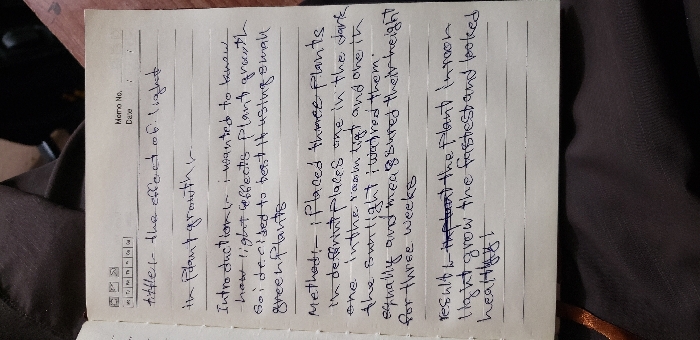 Memo No.
Date / /
tittle:- the effect of light
in Plant growth:-
Introduction:- i wanted to know
how light effects Plant growth
So i decided to test it using small
green Plants
Method:- i Placed three Plants
in different Places one in the dark
one in the room light and one in
the sun light i watred them
equally and measured their height
for three weeks
result:- the Plant in room
light grow the fastest and looked
healthy!